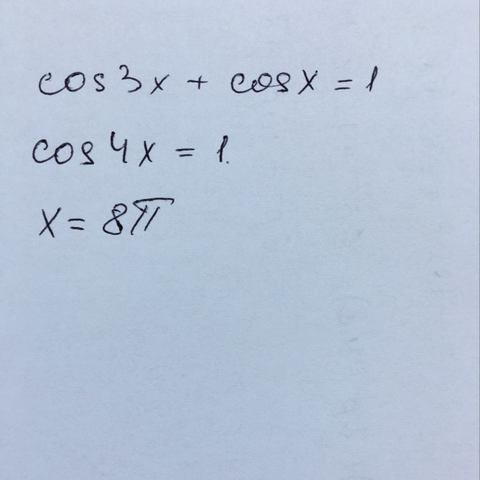 cos3x + cosx = 1
cos4x = 1.
x = 8π